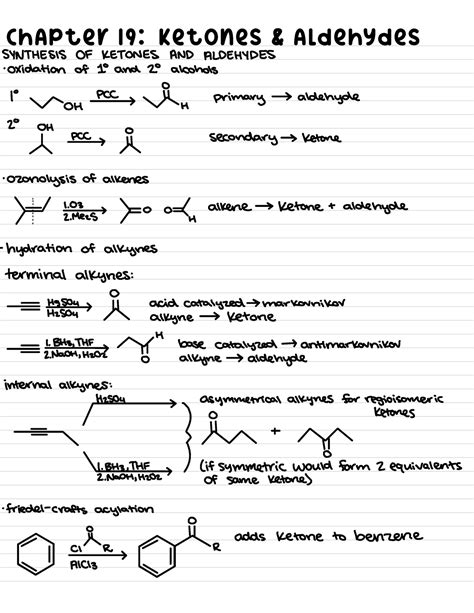 Chapter 19: Ketones & Aldehydes
SYNTHESIS OF KETONES AND ALDEHYDES
·oxidation of 1° and 2° alcohols
1° OH PCC O H primary → aldehyde
2° OH PCC O secondary → ketone
·ozonolysis of alkenes
1.O3 2.Me2S O O H alkene → ketone + aldehyde
-hydration of alkynes
terminal alkynes:
HgSO4 H2SO4 O acid catalyzed → markovnikov
alkyne → ketone
1. BH3, THF 2.NaOH, H2O2 O H base catalyzed → antimarkovnikov
alkyne → aldehyde
internal alkynes:
H2SO4 asymmetrical alkynes for regioisomeric
ketones
O + O
1.BH3, THF (if symmetric would form 2 equivalents
2.NaOH, H2O2 of same ketone)
·friedel-crafts acylation
O Cl R AlCl3 O R adds ketone to benzene